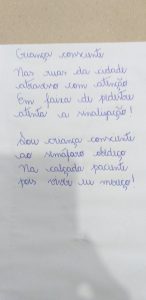 Criança consciente
Nas ruas da cidade
atravesso com atenção
Em faixa de pedestre
atenta a sinalização!
Sou criança consciente
ao semáforo obedeço
Na calçada paciente
pois viver eu mereço!